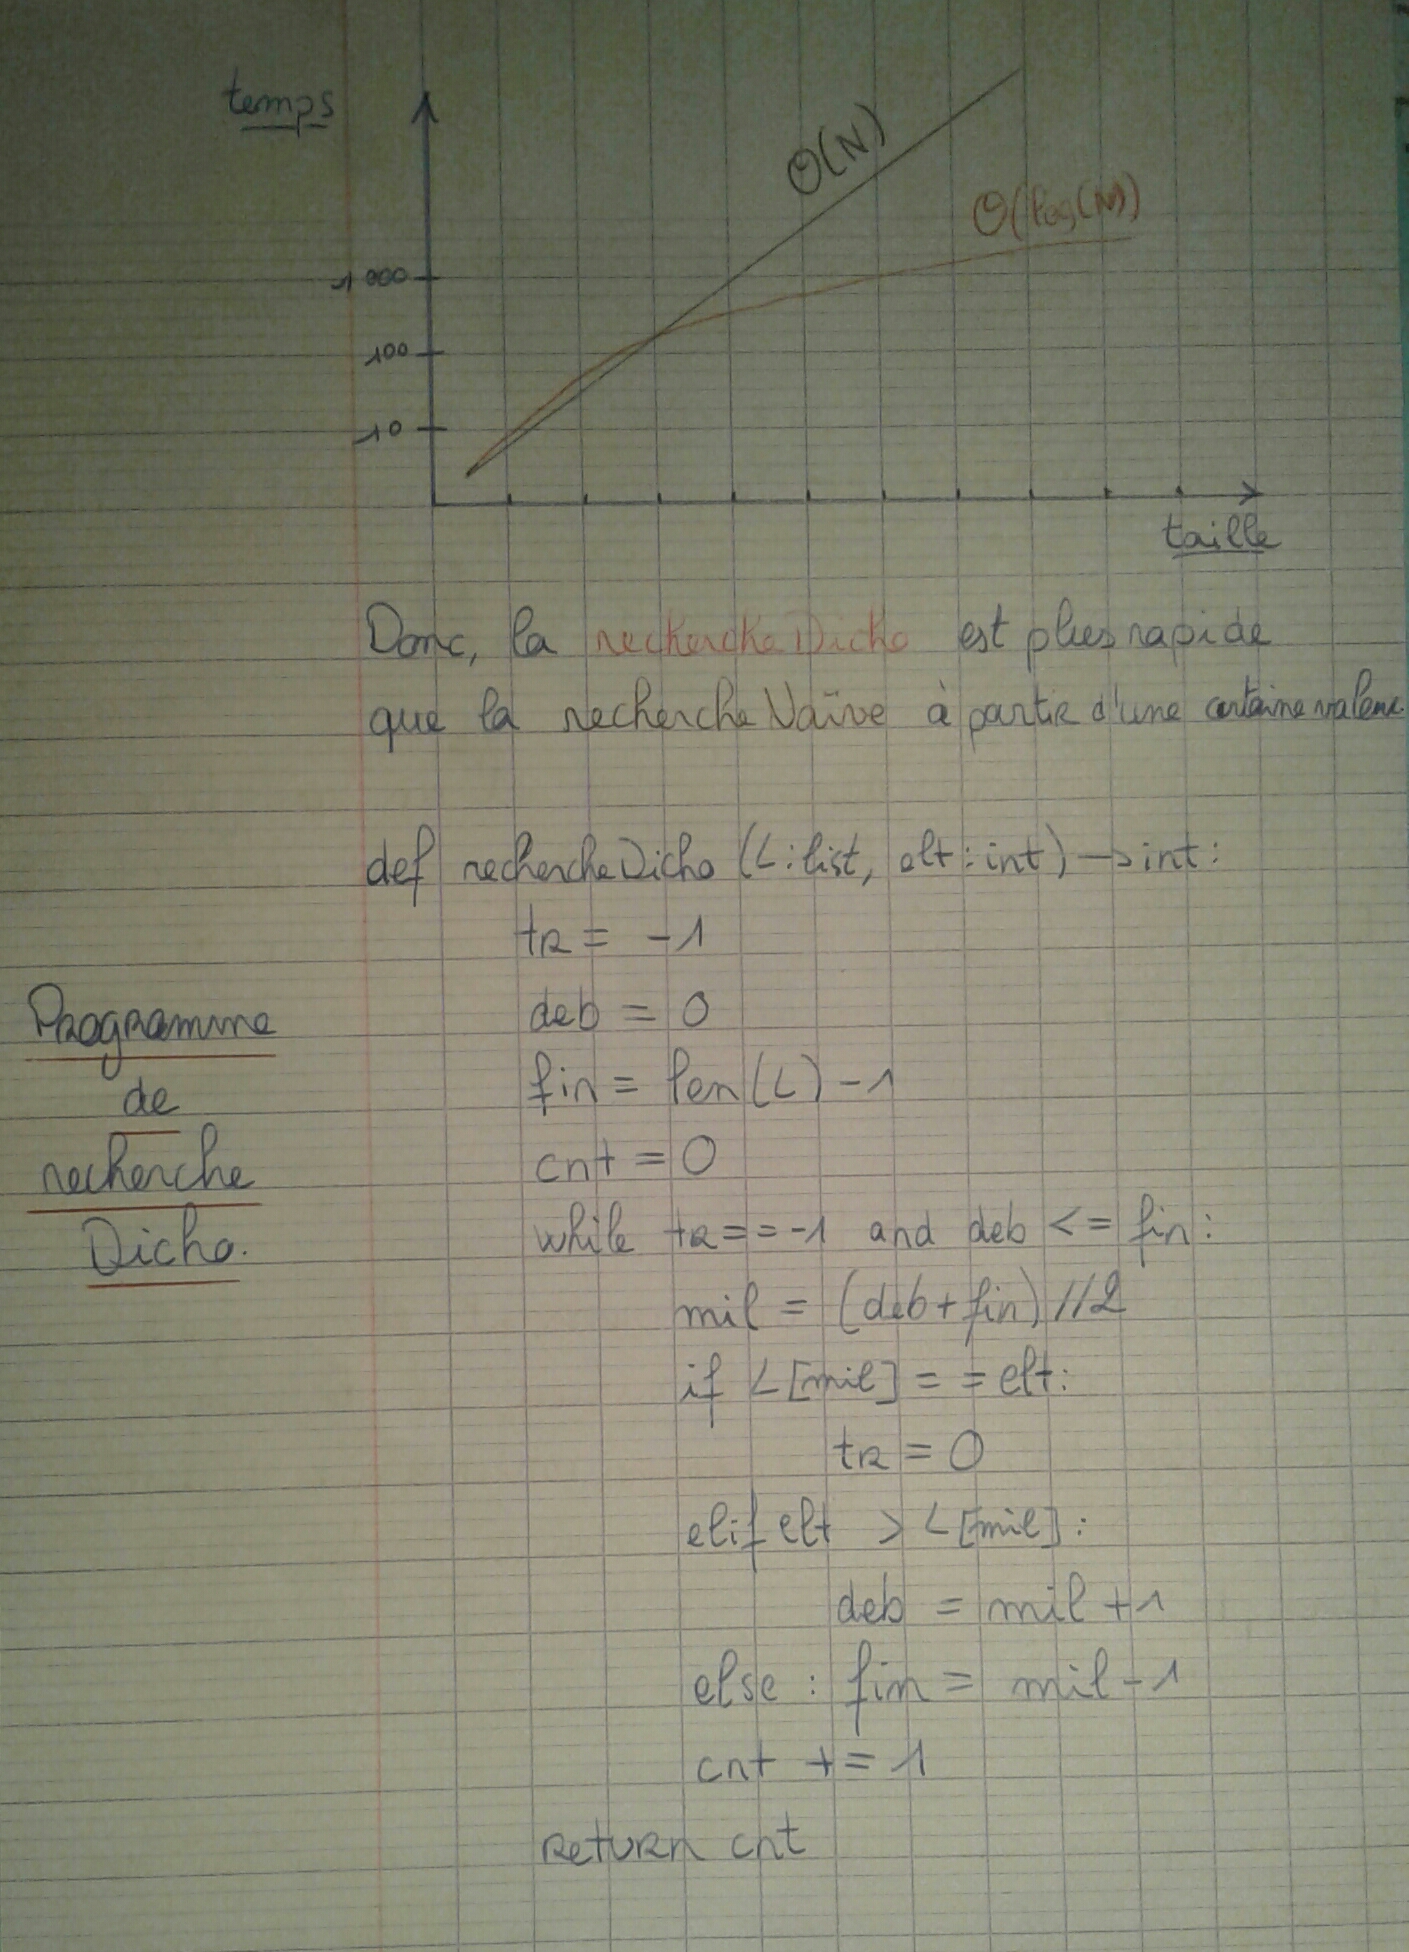 temps
O(N)
O(log(N))
1 000
100
10
taille
Donc, la recherche Dicho est plus rapide
que la recherche Naïve à partir d'une certaine valeur
def recherche Dicho (L: list, elt: int) -> int:
tr = -1
deb = 0
fin = len(L) -1
cnt = 0
while tr == -1 and deb <= fin:
mil = (deb + fin) // 2
if L[mil] == elt:
tr = 0
elif elt > L[mil]:
deb = mil + 1
else : fin = mil - 1
cnt += 1
return cnt
Programme
de
recherche
Dicho.